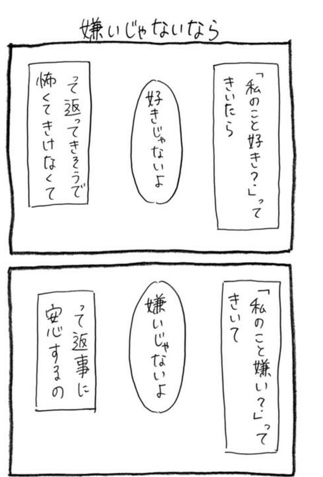 嫌いじゃないなら
「私のこと好き？」って
きいたら
好きじゃないよ
って返ってきそうで
怖くてきけなくて
「私のこと嫌い？」って
きいて
嫌いじゃないよ
って返事に
安心するの